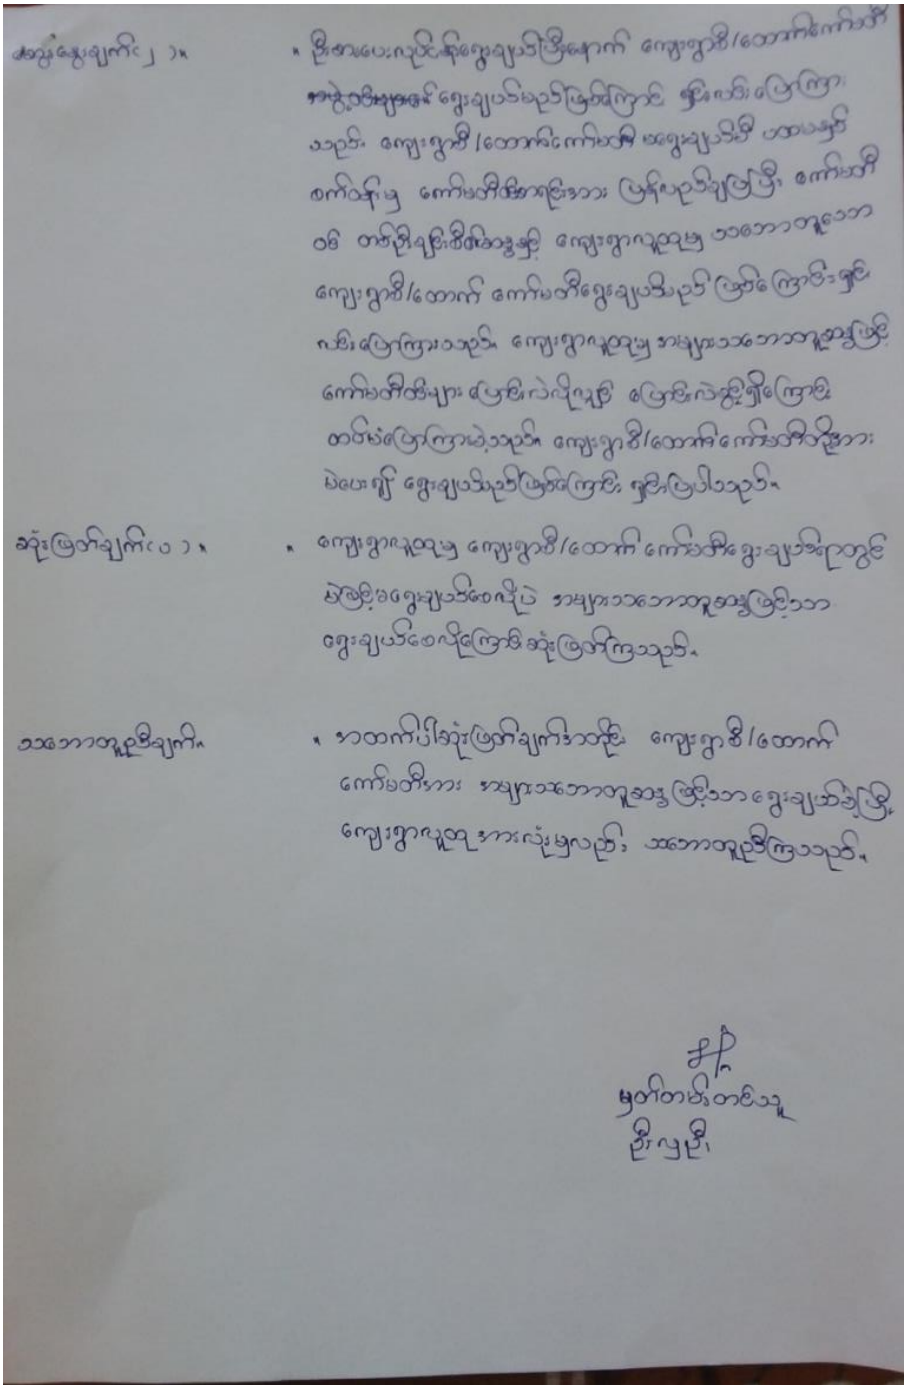 ဆွေးနွေးချက်(၂)။ ။ ဦးစားပေးလုပ်ငန်းရွေးချယ်ပြီးနောက် ကျေးရွာစီ/ထောက်ကော်မတီ
ရွေးချယ်မည်ဖြစ်ကြောင်း ရှင်းလင်းပြောကြား
သည်။ ကျေးရွာစီ/ထောက်ကော်မတီ မရွေးချယ်မီ ပထမနှစ်
စက်ဝန်းမှ ကော်မတီစာရင်းအား ပြန်လည်ချပြပြီး ကော်မတီ
ဝင် တစ်ဦးချင်းစီ၏ဆန္ဒနှင့် ကျေးရွာလူထုမှ သဘောတူသော
ကျေးရွာစီ/ထောက် ကော်မတီရွေးချယ်မည်ဖြစ်ကြောင်းရှင်း
လင်းပြောကြားသည်။ ကျေးရွာလူထုမှ အများသဘောတူဆန္ဒဖြင့်
ကော်မတီဝင်များ ပြောင်းလဲလိုလျှင် ပြောင်းလဲခွင့်ရှိကြောင်း
ထပ်မံပြောကြားခဲ့သည်။ ကျေးရွာစီ/ထောက်ကော်မတီတို့အား
မဲပေး၍ ရွေးချယ်မည်ဖြစ်ကြောင်း ရှင်းပြပါသည်။
ဆုံးဖြတ်ချက်(၁)။ ။ ကျေးရွာလူထုမှ ကျေးရွာစီ/ထောက် ကော်မတီရွေးချယ်ရာတွင်
မဲဖြင့်မရွေးချယ်စေလိုပဲ အများသဘောတူဆန္ဒဖြင့်သာ
ရွေးချယ်စေလိုကြောင်းဆုံးဖြတ်ကြသည်။
သဘောတူညီချက်။ ။ အထက်ပါဆုံးဖြတ်ချက်အတိုင်း ကျေးရွာစီ/ထောက်
ကော်မတီအား အများသဘောတူဆန္ဒဖြင့်သာရွေးချယ်ခဲ့ပြီး
ကျေးရွာလူထုအားလုံးမှလည်း သဘောတူညီကြသည်။
မှတ်တမ်းတင်သူ
ဦးလှဦး